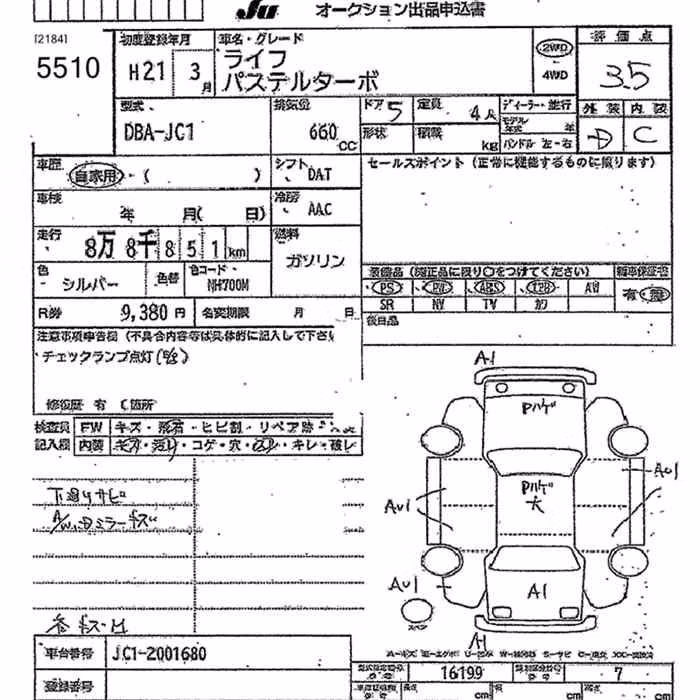 Ju オークション出品申込書
[2184]
5510
初度登録年月
H21 3月
車名・グレード
ライフ
パステルターボ
2WD
4WD
評価点
3.5
型式
DBA-JC1
排気量
660 CC
ドア 5
定員 4人
形状
積載 kg
ディーラー・並行
モデル年式 年
ハンドル 左・右
外装 内装
D C
車歴
自家用・( )
シフト
DAT
セールスポイント(正常に機能するものに限ります)
車検
年 月( 日)
冷房
AAC
走行
8万 8千 8 5 1 km
燃料
ガソリン
色
シルバー
色替
色コード
NH700M
装備品(純正品に限り○をつけてください)
新車保証書
PS PW ABS エアB AW
有・無
SR NV TV カワ
R券 9,380 円
名変期限 月 日
後日品
注意事項申告欄(不具合内容等は具体的に記入して下さい
チェックランプ点灯
修復歴 有 ( 箇所
検査員
記入欄
FW キズ・飛石・ヒビ割・リペア跡
内装 キズ・汚れ・コゲ・穴・スレ・キレ・破レ
下廻りサビ
A/W、Dミラーキズ
各キズ・凹
A1
Pハゲ
Pハゲ
大
AU1
AU1
AU1
A1
スペア
A1
車台番号 JC1-2001680
登録番号
型式指定番号 16199
類別区分番号 7
長さ cm
cm
cm